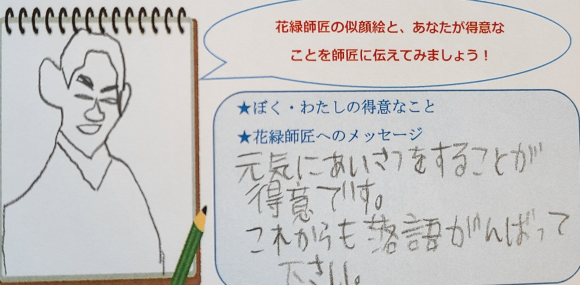 花緑師匠の似顔絵と、あなたが得意な
ことを師匠に伝えてみましょう！
★ぼく・わたしの得意なこと
★花緑師匠へのメッセージ
元気にあいさつをすることが
得意です。
これからも落語がんばって
下さい。